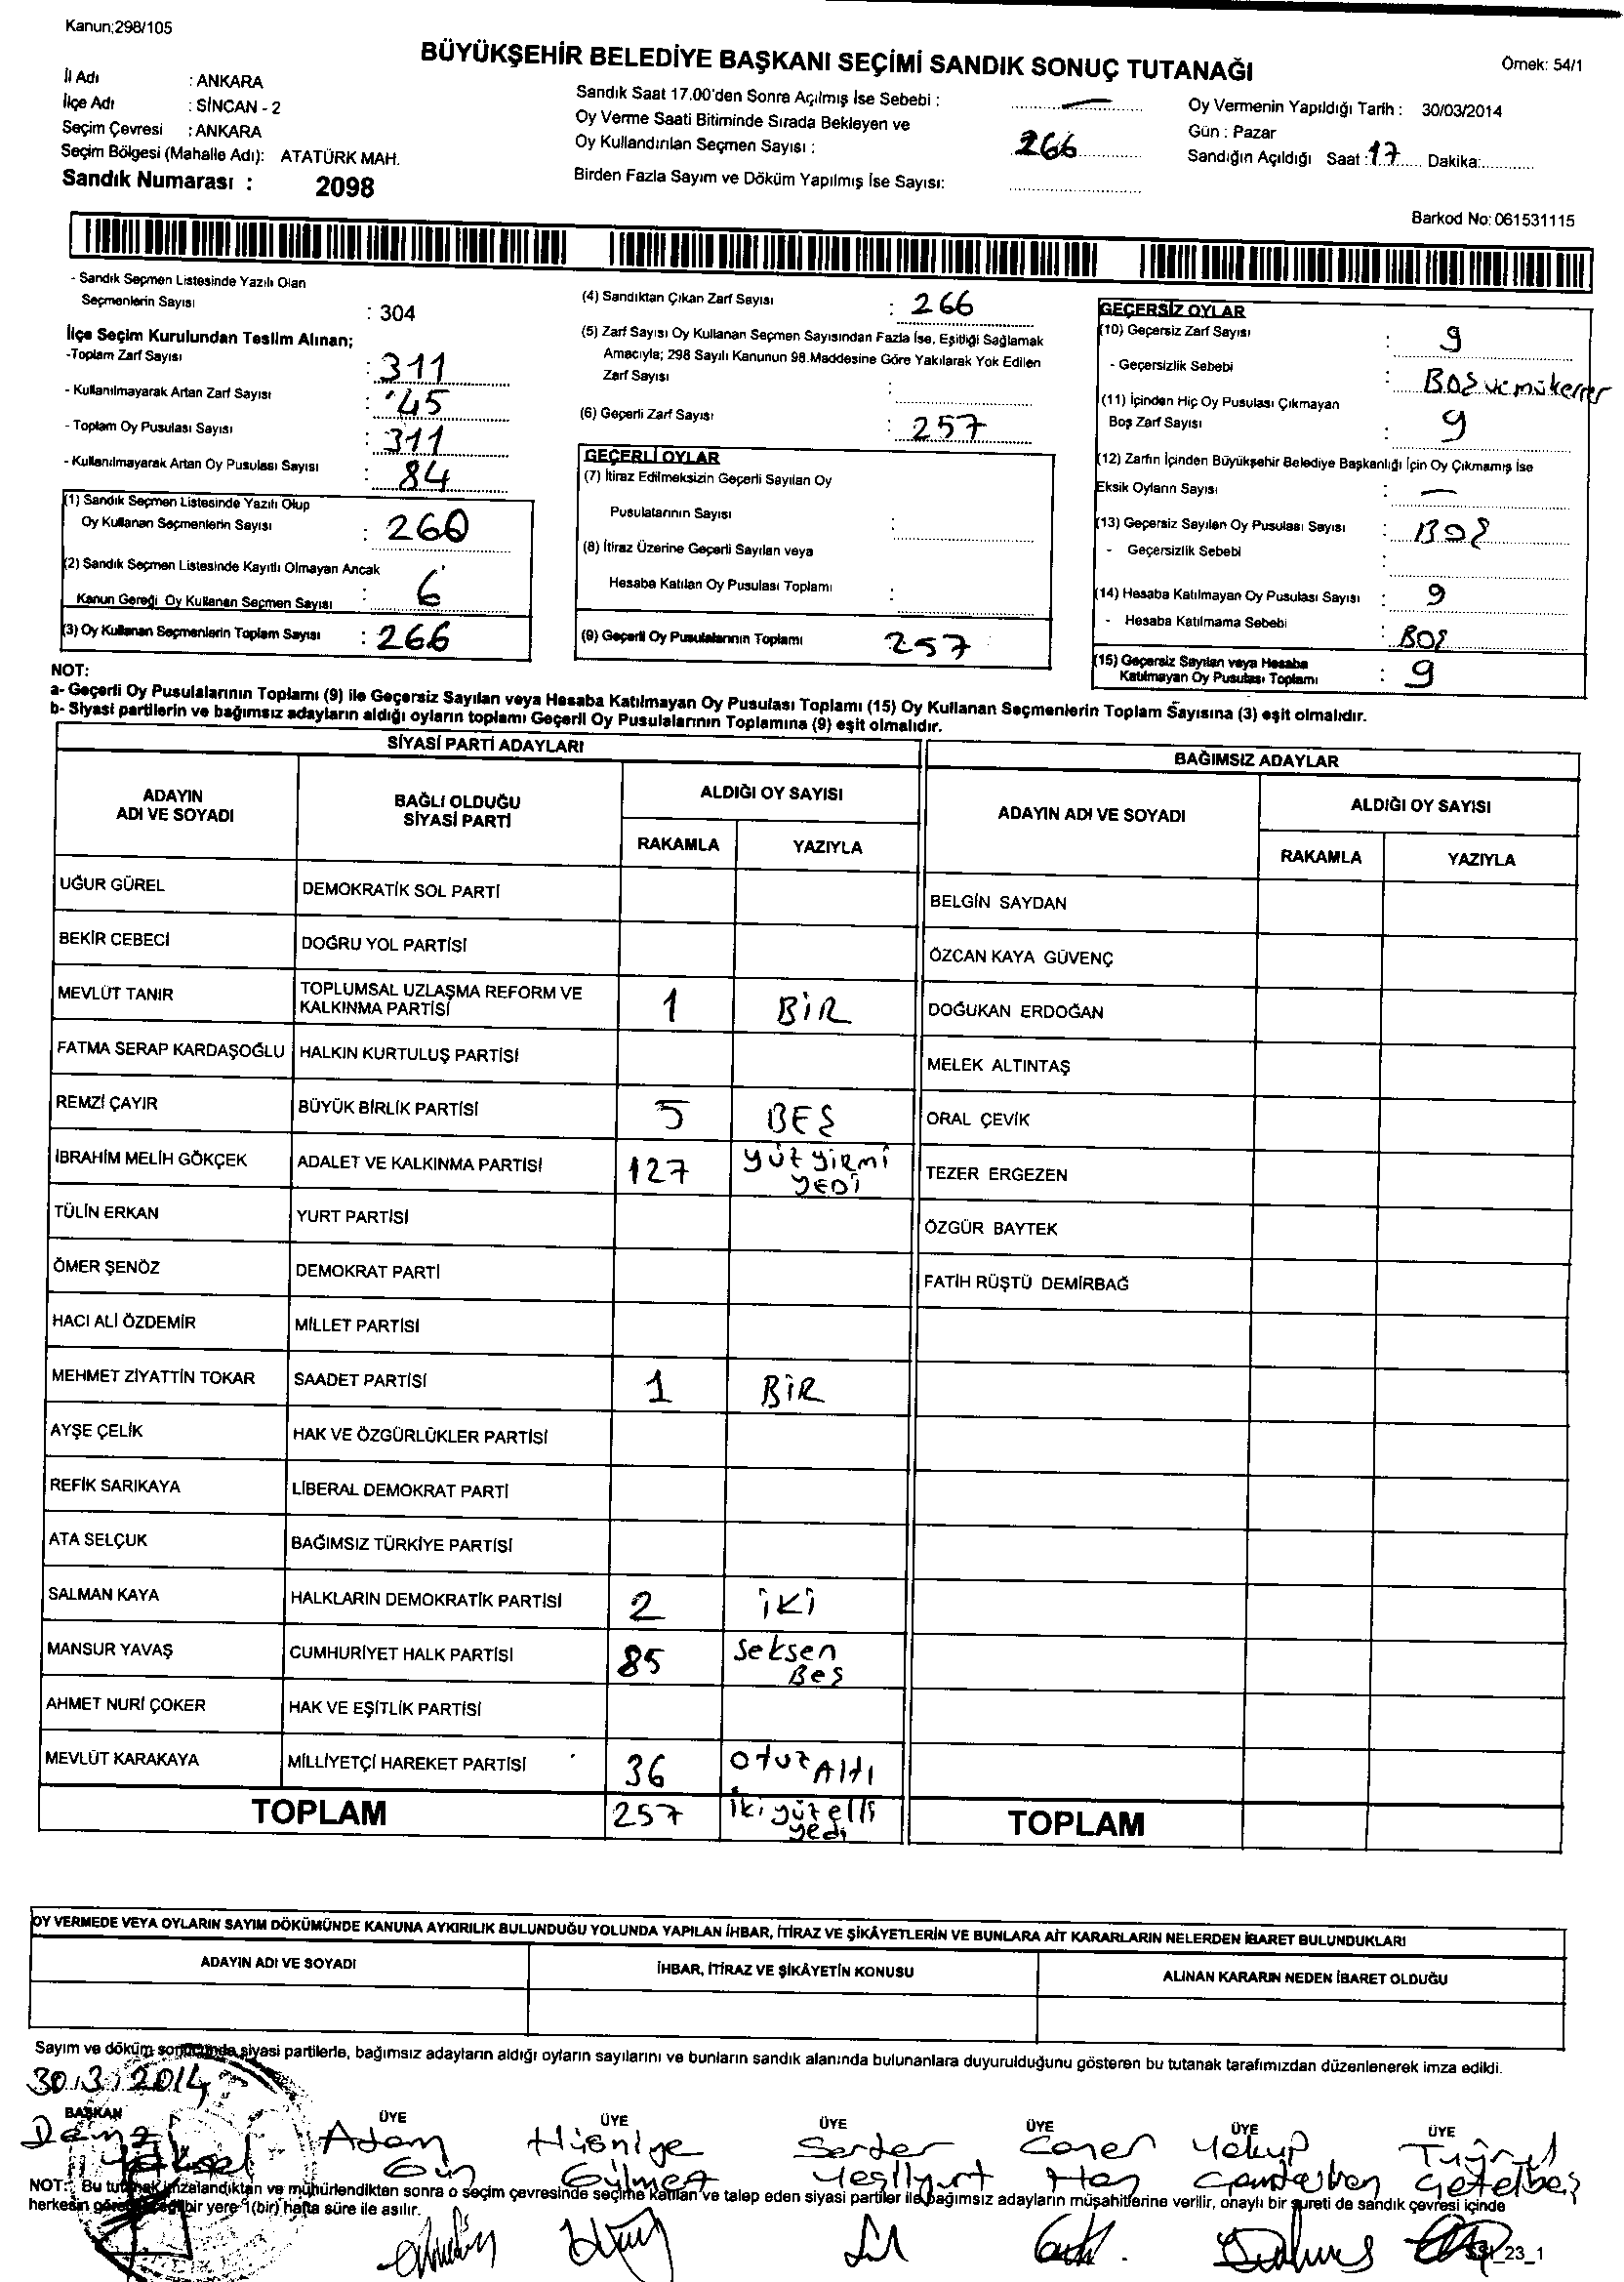 Kanun;298/105
BÜYÜKŞEHİR BELEDİYE BAŞKANI SEÇİMİ SANDIK SONUÇ TUTANAĞI
Örnek: 54/1
İl Adı : ANKARA
İlçe Adı : SİNCAN - 2
Seçim Çevresi : ANKARA
Seçim Bölgesi (Mahalle Adı): ATATÜRK MAH.
Sandık Numarası : 2098
Sandık Saat 17.00'den Sonra Açılmış İse Sebebi : —
Oy Verme Saati Bitiminde Sırada Bekleyen ve
Oy Kullandırılan Seçmen Sayısı : 266
Birden Fazla Sayım ve Döküm Yapılmış İse Sayısı:
Oy Vermenin Yapıldığı Tarih : 30/03/2014
Gün : Pazar
Sandığın Açıldığı Saat : 17 Dakika:
Barkod No: 061531115
- Sandık Seçmen Listesinde Yazılı Olan
Seçmenlerin Sayısı : 304
İlçe Seçim Kurulundan Teslim Alınan;
-Toplam Zarf Sayısı : 311
- Kullanılmayarak Artan Zarf Sayısı : 45
- Toplam Oy Pusulası Sayısı : 311
- Kullanılmayarak Artan Oy Pusulası Sayısı : 84
(1) Sandık Seçmen Listesinde Yazılı Olup
Oy Kullanan Seçmenlerin Sayısı : 260
(2) Sandık Seçmen Listesinde Kayıtlı Olmayan Ancak
Kanun Gereği Oy Kullanan Seçmen Sayısı : 6
(3) Oy Kullanan Seçmenlerin Toplam Sayısı : 266
(4) Sandıktan Çıkan Zarf Sayısı : 266
(5) Zarf Sayısı Oy Kullanan Seçmen Sayısından Fazla İse, Eşitliği Sağlamak
Amacıyla; 298 Sayılı Kanunun 98.Maddesine Göre Yakılarak Yok Edilen
Zarf Sayısı :
(6) Geçerli Zarf Sayısı : 257
GEÇERLİ OYLAR
(7) İtiraz Edilmeksizin Geçerli Sayılan Oy
Pusulalarının Sayısı :
(8) İtiraz Üzerine Geçerli Sayılan veya
Hesaba Katılan Oy Pusulası Toplamı :
(9) Geçerli Oy Pusulalarının Toplamı 257
GEÇERSİZ OYLAR
(10) Geçersiz Zarf Sayısı : 9
- Geçersizlik Sebebi : BOŞ ve mükerrer
(11) İçinden Hiç Oy Pusulası Çıkmayan
Boş Zarf Sayısı : 9
(12) Zarfın İçinden Büyükşehir Belediye Başkanlığı İçin Oy Çıkmamış İse
Eksik Oyların Sayısı : —
(13) Geçersiz Sayılan Oy Pusulası Sayısı : BOŞ
- Geçersizlik Sebebi :
(14) Hesaba Katılmayan Oy Pusulası Sayısı : 9
- Hesaba Katılmama Sebebi : BOŞ
(15) Geçersiz Sayılan veya Hesaba
Katılmayan Oy Pusulası Toplamı : 9
NOT:
a- Geçerli Oy Pusulalarının Toplamı (9) ile Geçersiz Sayılan veya Hesaba Katılmayan Oy Pusulası Toplamı (15) Oy Kullanan Seçmenlerin Toplam Sayısına (3) eşit olmalıdır.
b- Siyasi partilerin ve bağımsız adayların aldığı oyların toplamı Geçerli Oy Pusulalarının Toplamına (9) eşit olmalıdır.
SİYASİ PARTİ ADAYLARI
ADAYIN ADI VE SOYADI BAĞLI OLDUĞU SİYASİ PARTİ ALDIĞI OY SAYISI
RAKAMLA YAZIYLA
UĞUR GÜREL DEMOKRATİK SOL PARTİ
BEKİR CEBECİ DOĞRU YOL PARTİSİ
MEVLÜT TANIR TOPLUMSAL UZLAŞMA REFORM VE KALKINMA PARTİSİ 1 BİR
FATMA SERAP KARDAŞOĞLU HALKIN KURTULUŞ PARTİSİ
REMZİ ÇAYIR BÜYÜK BİRLİK PARTİSİ 5 BEŞ
İBRAHİM MELİH GÖKÇEK ADALET VE KALKINMA PARTİSİ 127 yüz yirmi yedi
TÜLİN ERKAN YURT PARTİSİ
ÖMER ŞENÖZ DEMOKRAT PARTİ
HACI ALİ ÖZDEMİR MİLLET PARTİSİ
MEHMET ZİYATTİN TOKAR SAADET PARTİSİ 1 BİR
AYŞE ÇELİK HAK VE ÖZGÜRLÜKLER PARTİSİ
REFİK SARIKAYA LİBERAL DEMOKRAT PARTİ
ATA SELÇUK BAĞIMSIZ TÜRKİYE PARTİSİ
SALMAN KAYA HALKLARIN DEMOKRATİK PARTİSİ 2 iki
MANSUR YAVAŞ CUMHURİYET HALK PARTİSİ 85 seksen Beş
AHMET NURİ ÇOKER HAK VE EŞİTLİK PARTİSİ
MEVLÜT KARAKAYA MİLLİYETÇİ HAREKET PARTİSİ 36 otuz Altı
TOPLAM 257 iki yüz elli yedi
BAĞIMSIZ ADAYLAR
ADAYIN ADI VE SOYADI ALDIĞI OY SAYISI
RAKAMLA YAZIYLA
BELGİN SAYDAN
ÖZCAN KAYA GÜVENÇ
DOĞUKAN ERDOĞAN
MELEK ALTINTAŞ
ORAL ÇEVİK
TEZER ERGEZEN
ÖZGÜR BAYTEK
FATİH RÜŞTÜ DEMİRBAĞ
TOPLAM
OY VERMEDE VEYA OYLARIN SAYIM DÖKÜMÜNDE KANUNA AYKIRILIK BULUNDUĞU YOLUNDA YAPILAN İHBAR, İTİRAZ VE ŞİKÂYETLERİN VE BUNLARA AİT KARARLARIN NELERDEN İBARET BULUNDUKLARI
ADAYIN ADI VE SOYADI İHBAR, İTİRAZ VE ŞİKÂYETİN KONUSU ALINAN KARARIN NEDEN İBARET OLDUĞU
Sayım ve döküm sonucunda siyasi partilerle, bağımsız adayların aldığı oyların sayılarını ve bunların sandık alanında bulunanlara duyurulduğunu gösteren bu tutanak tarafımızdan düzenlenerek imza edildi.
30.3.2014
BAŞKAN ÜYE ÜYE ÜYE ÜYE ÜYE ÜYE
Adem Hüsniye Serder Caner Yakup Tuğrul
Yüksel Gün Gülmez Yeşilyurt
NOT: Bu tutanak imzalandıktan ve mühürlendikten sonra o seçim çevresinde seçime katılan ve talep eden siyasi partiler ile bağımsız adayların müşahitlerine verilir, onaylı bir sureti de sandık çevresi içinde
herkesin görebileceği bir yere 1(bir) hafta süre ile asılır.
23_1